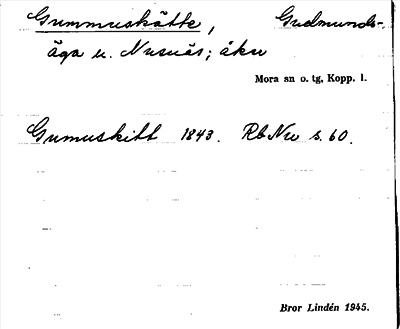 Gummuskätte, Gudmunds-
äga u. Nusnäs; åkr
Mora sn o. tg, Kopp. l.
Gumuskitt 1843. Rb Nu s. 60.
Bror Lindén 1945.